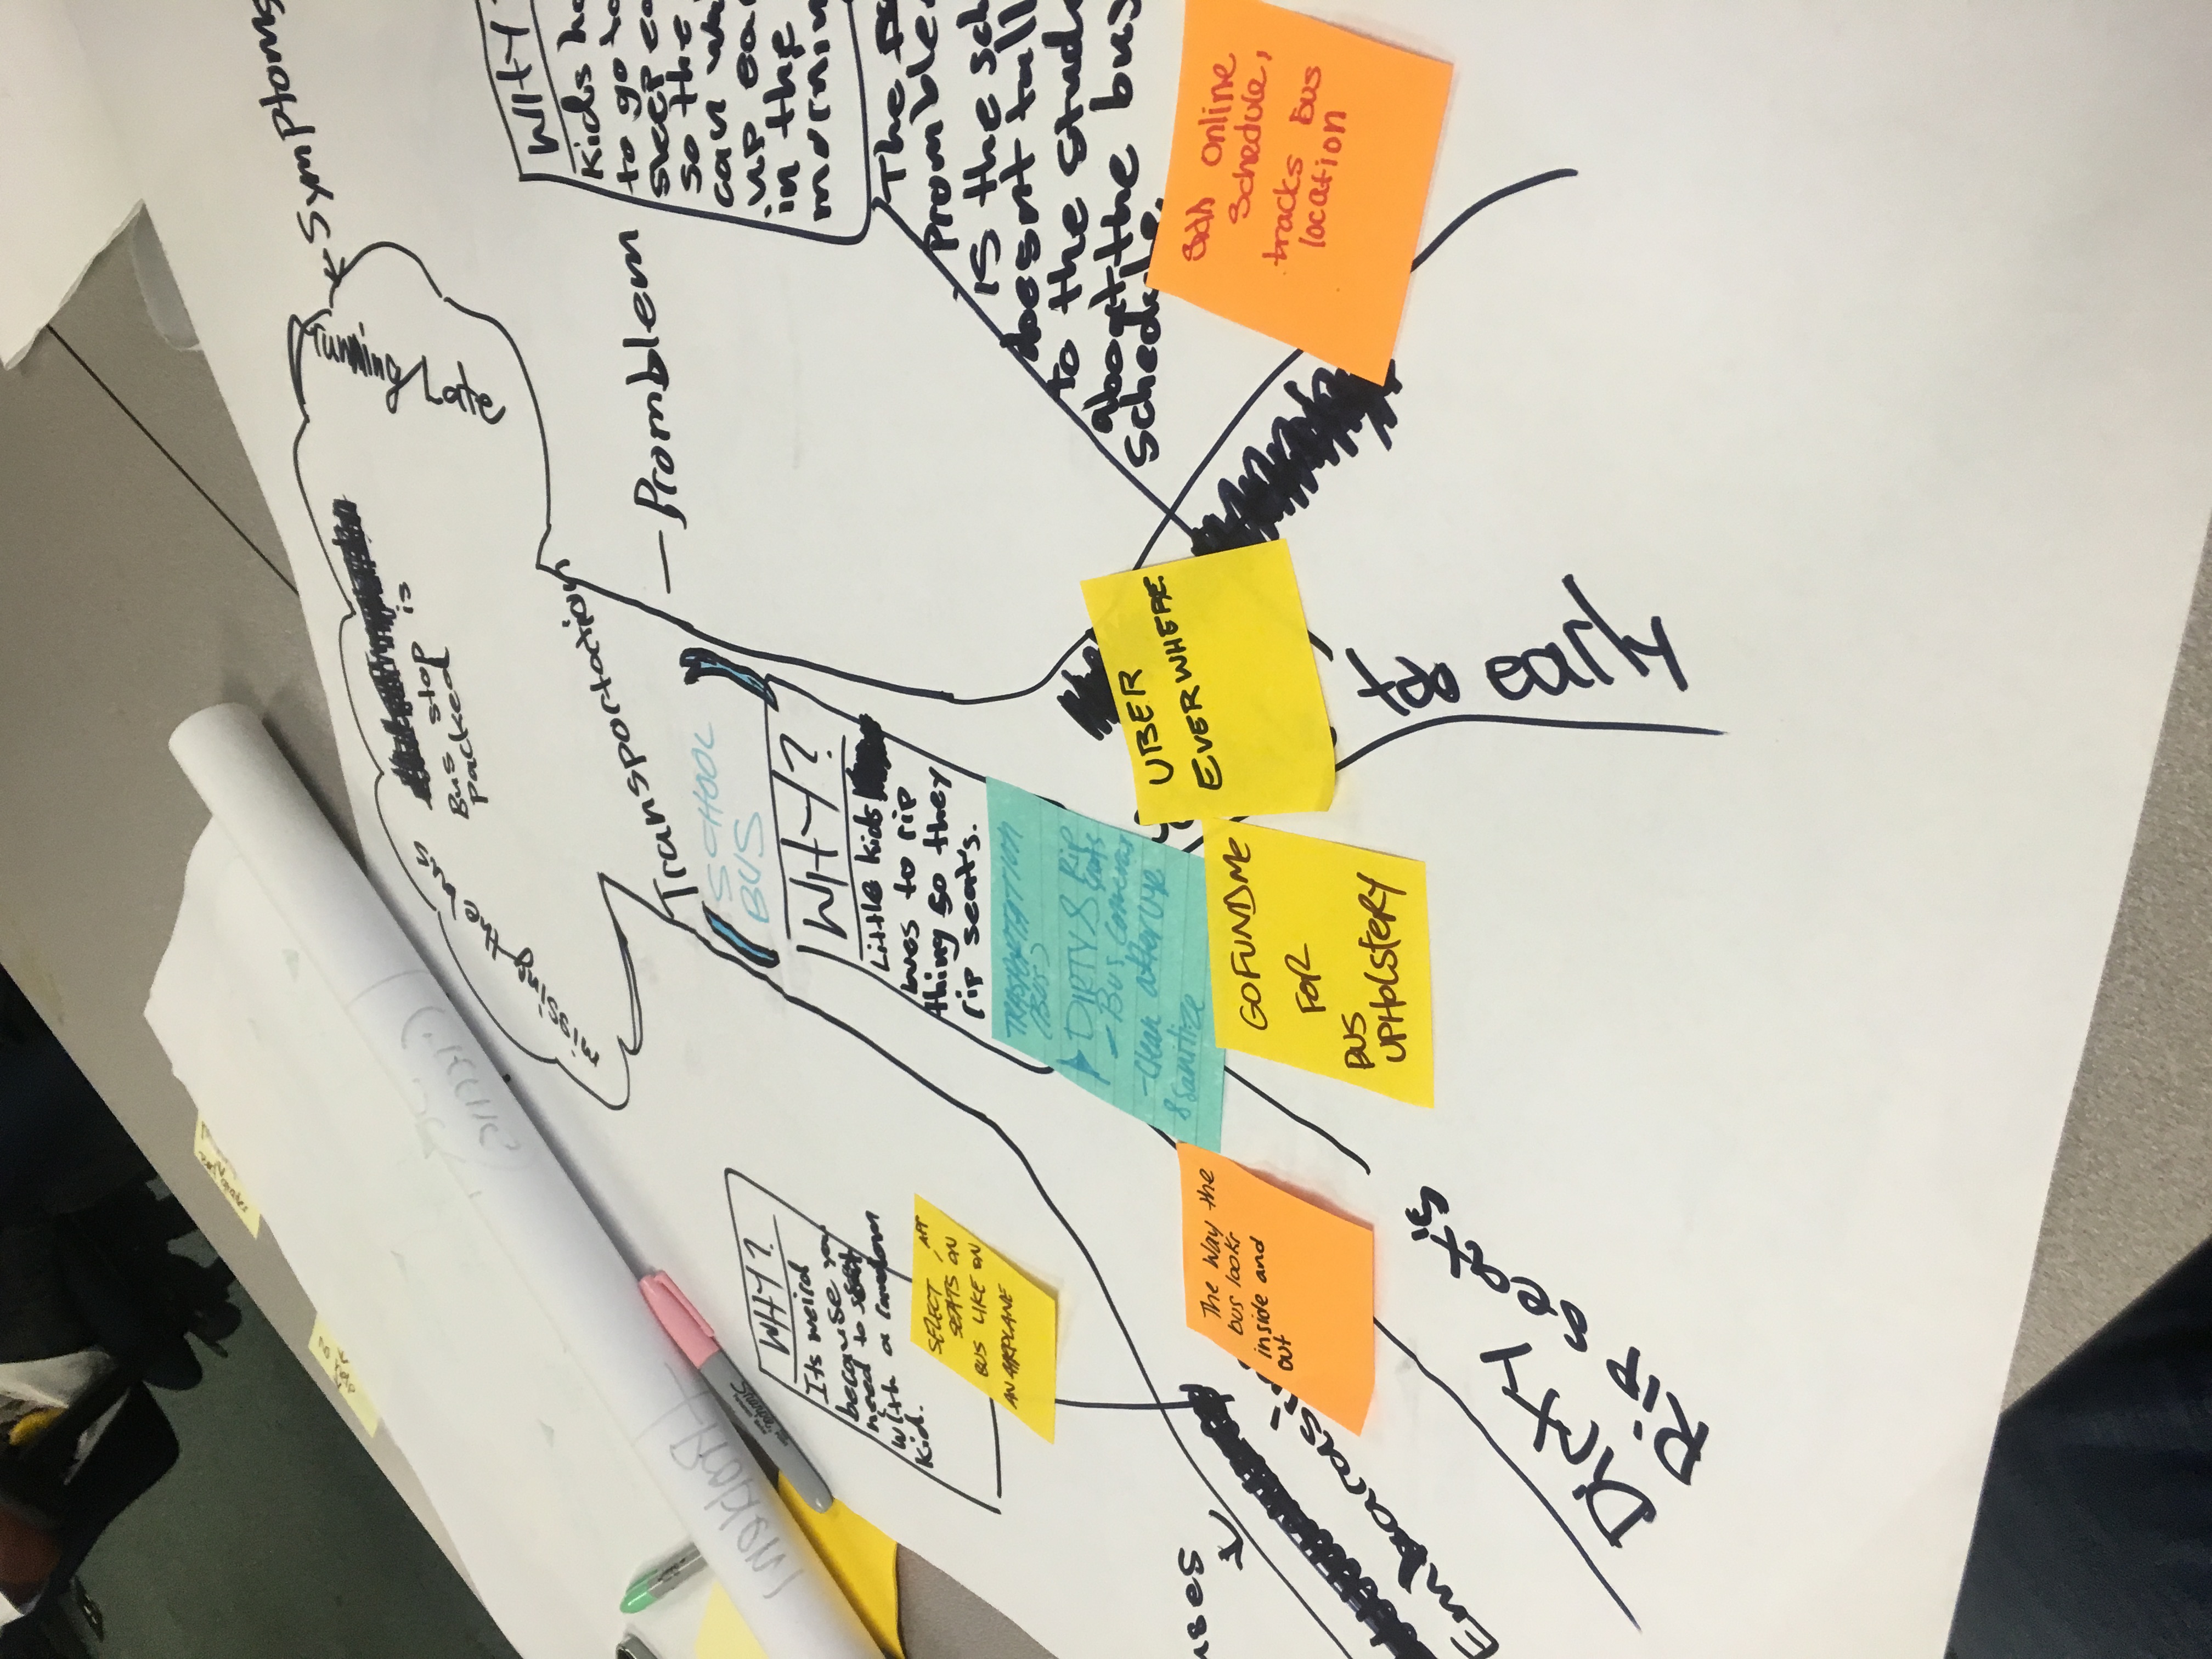 Symptoms
missing the bus
Bus stop is
packed
running late
Transportaction
Promblem
SCHOOL
BUS
WHY?
Its weird
because you
need to
with a random
kid.
SELECT APP
SEATS ON
BUS LIKE ON
AN AIRPLANE
WHY?
Little kids
to rip
thing so they
rip seat's.
TRANSPORTATION
(BUS)
DIRTY & Rip
Seats
- Bus cameras
- Clean after use
& Sanitize
WHY?
Kids
to go to
sleep
so the
can
up
in the
The
IS the
doesn't
to the
about the bus
Schedule.
Embarasi
The way the
bus looks
inside and
out
Dirty
Rip seat's
GOFUNDME
FOR
BUS
UPHOLSTERY
UBER
EVERWHERE
too early
Online
Schedule,
tracks Bus
location
Problem
Sharpie